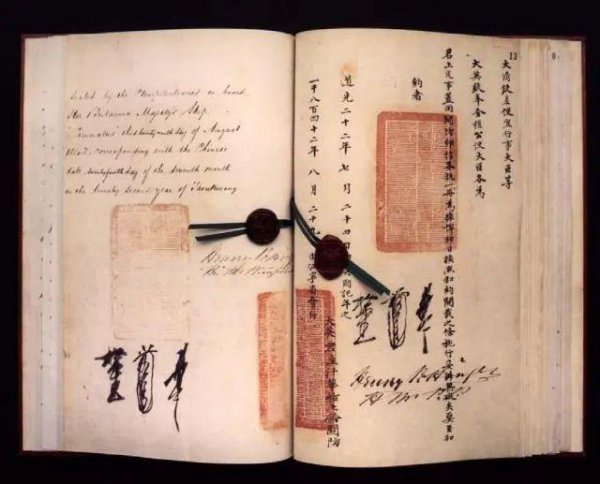 Sealed by the Plenipotentiaries on board
Her Britannic Majesty's Ship
Cornwallis this twenty ninth day of August
1842. corresponding with the Chinese
date, twenty fourth day of the seventh month
in the twenty second year of Taoukwang
Henry
13
大清欽差便宜行事大臣等
大英欽奉全權公使大臣各為
君上定事蓋用關防印信各執一冊為據俾即日按照和約開載之條施行妥辦無礙矣要至和
約者
道光二十二年七月二十四日即英國記年之
一千八百四十二年八月二十九日由江寧省會行
大英君主汗華船上鈐關防
Henry Pottinger